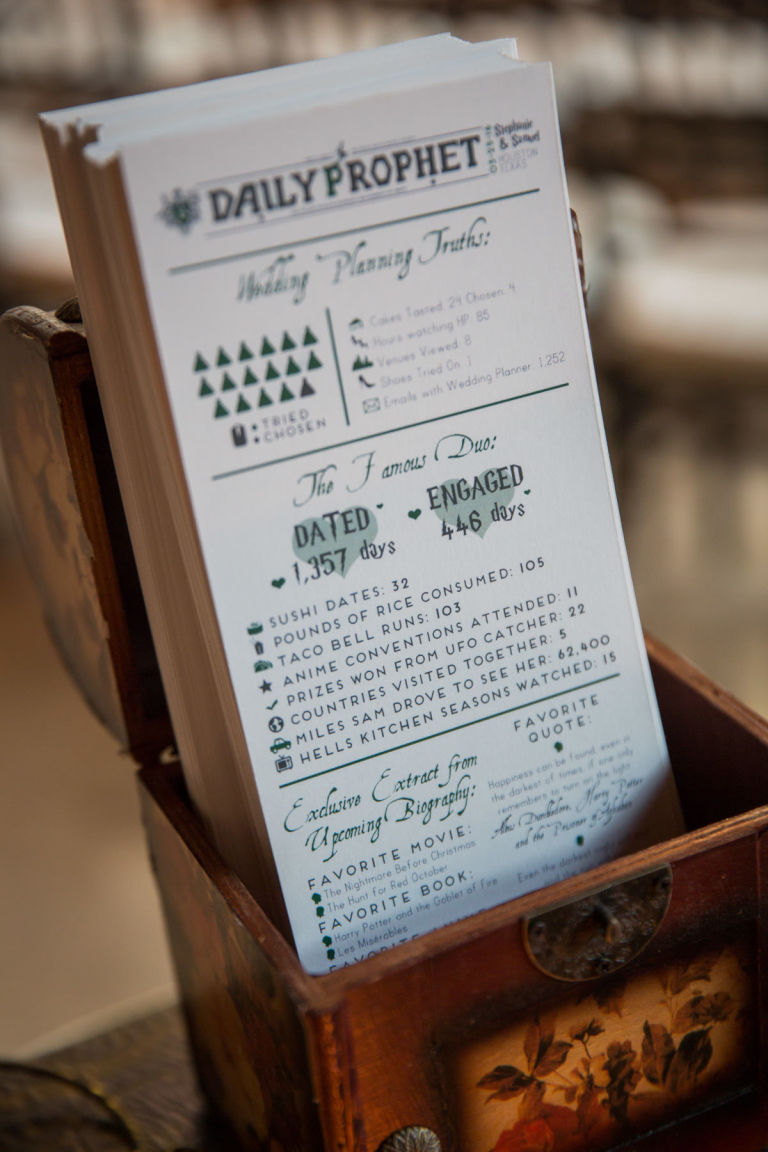 DAILY PROPHET
Stephanie
& Samuel
HOUSTON
TEXAS
Wedding Planning Truths:
: TRIED
: CHOSEN
Cakes Tasted: 24 Chosen: 4
Hours watching HP: 85
Venues Viewed: 8
Shoes Tried On: 1
Emails with Wedding Planner: 1,252
The Famous Duo:
DATED
1,357 days
ENGAGED
446 days
SUSHI DATES: 32
POUNDS OF RICE CONSUMED: 105
TACO BELL RUNS: 103
ANIME CONVENTIONS ATTENDED: 11
PRIZES WON FROM UFO CATCHER: 22
COUNTRIES VISITED TOGETHER: 5
MILES SAM DROVE TO SEE HER: 62,400
HELLS KITCHEN SEASONS WATCHED: 15
Exclusive Extract from
Upcoming Biography:
FAVORITE MOVIE:
The Nightmare Before Christmas
The Hunt for Red October
FAVORITE BOOK:
Harry Potter and the Goblet of Fire
Les Misérables
FAVORITE
FAVORITE
QUOTE:
Happiness can be found, even in
the darkest of times, if one only
remembers to turn on the light.
Albus Dumbledore, Harry Potter
and the Prisoner of Azkaban
Even the darkest